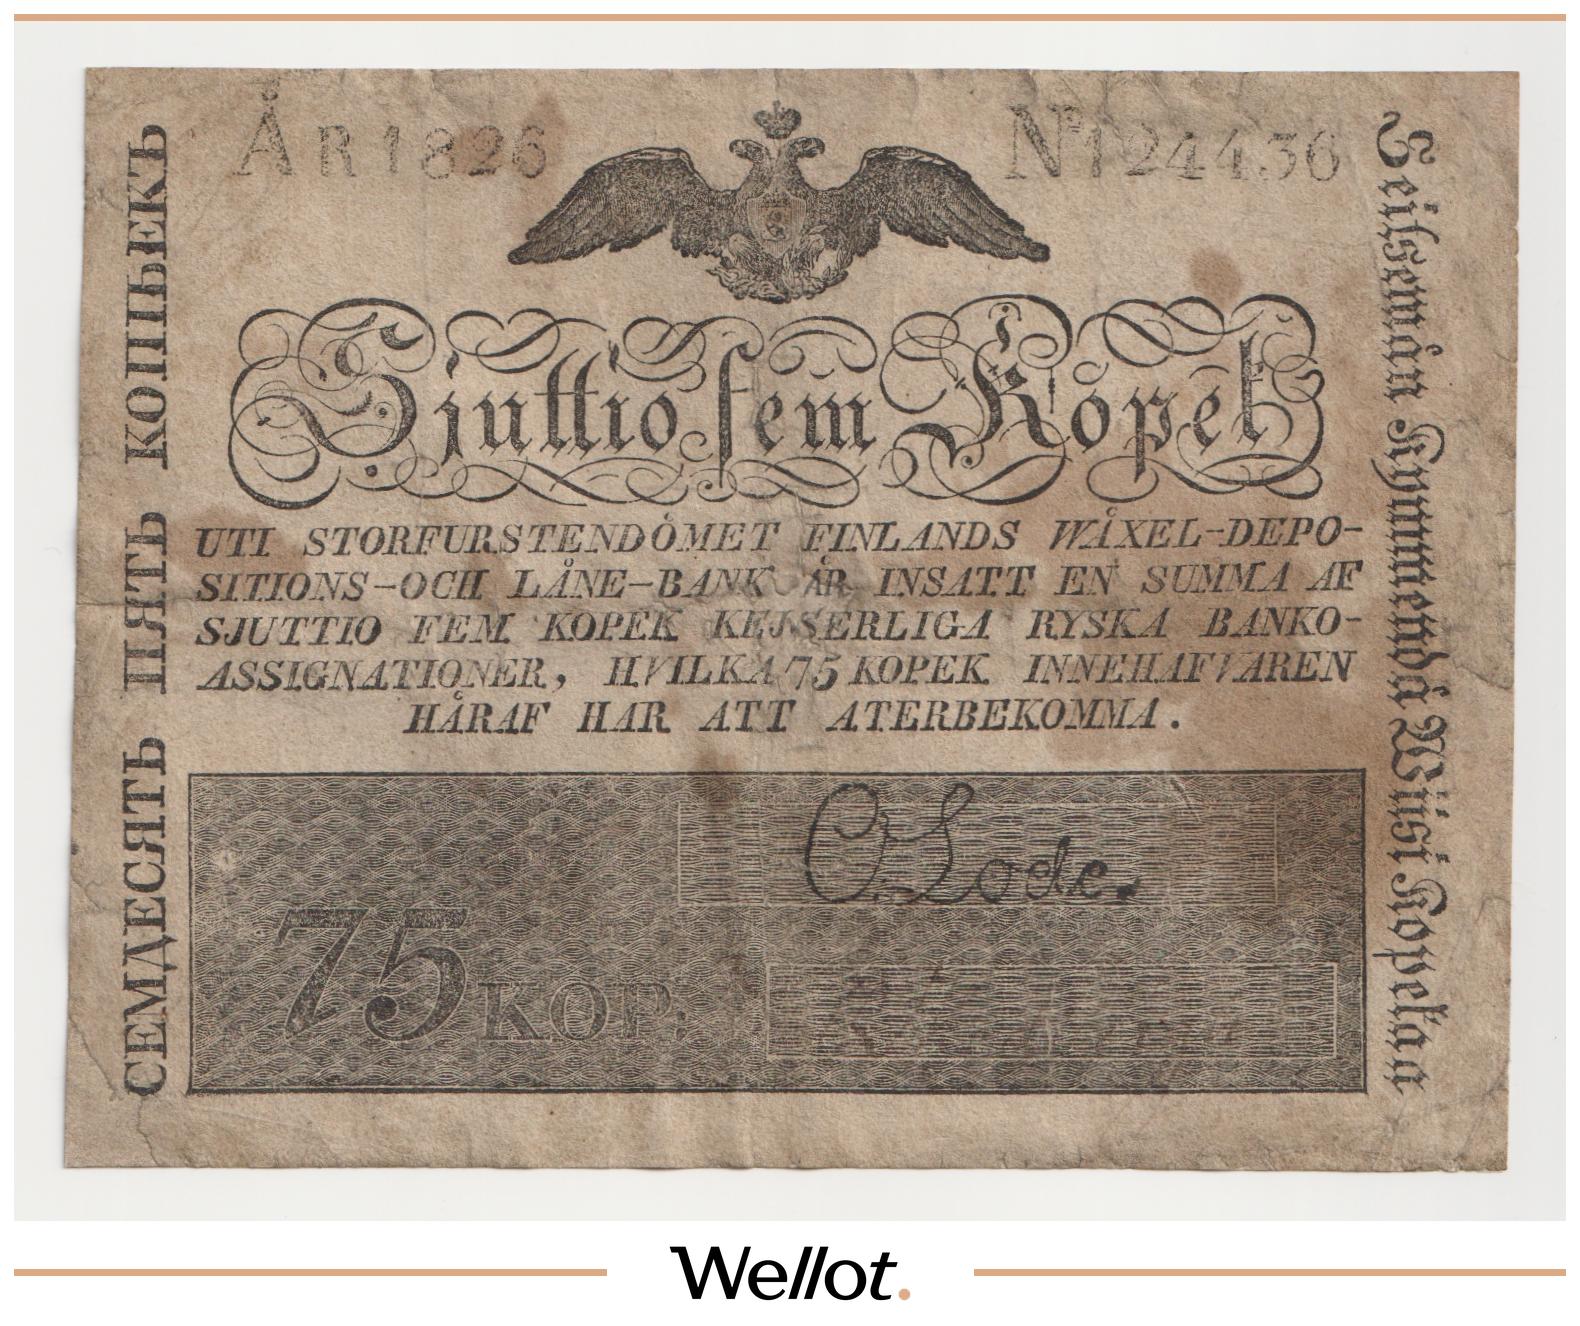 ÅR 1826
No 124436
Sjuttio fem Kopek
UTI STORFURSTENDÖMET FINLANDS WÄXEL-DEPO-
SITIONS-OCH LÅNE-BANK ÄR INSATT EN SUMMA AF
SJUTTIO FEM KOPEK KEJSERLIGA RYSKA BANKO-
ASSIGNATIONER, HVILKA 75 KOPEK INNEHAFVAREN
HÄRAF HAR ATT ATERBEKOMMA.
75 KOP:
C. Lode.
СЕМДЕСЯТЬ ПЯТЬ КОПѢЕКЪ
Seitsemån Kymmendå Wiisi Kopekaa
Wellot.